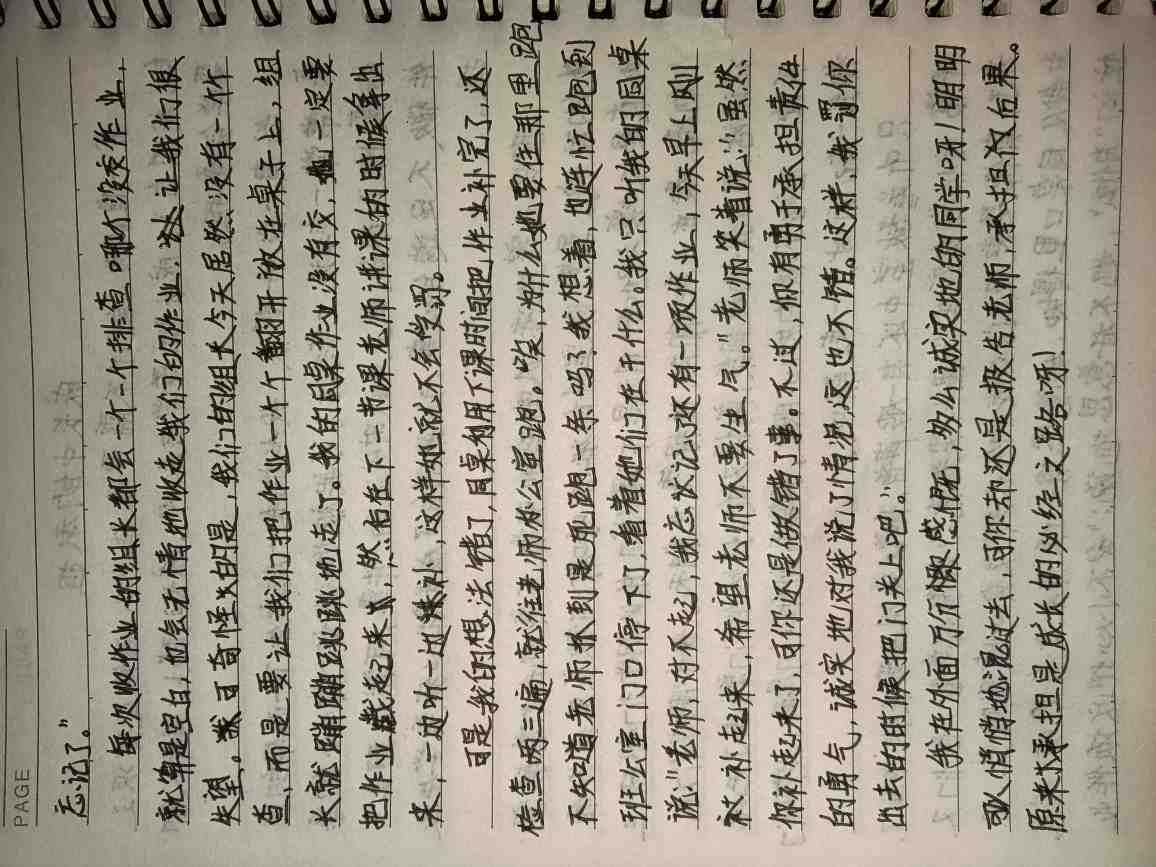 PAGE
忘记了。”
每次收作业的组长都会一个一个排查哪个没交作业，
就算是空白，也会无情地收走我们的作业，让我们很
失望。可奇怪的是，我们的组长今天居然没有一个个
查，而是要让我们把作业一个个翻开放在桌子上，组
长就蹦蹦跳跳地走了。我的同桌作业没有交，她一定要
把作业藏起来，然后在下一节课老师讲课的时候拿出
来，一边听一边补，这样她就不会受罚。
可是我的想法错了，同桌利用下课时间把作业补完了，还
检查两三遍，就往老师办公室跑。唉，为什么她要往那里跑，
不知道老师抓到是死路一条吗？我想着，也连忙跑到
班公室门口停下了，看着她们在干什么。我只听我的同桌
说：“老师，对不起，我忘记了还有一项作业，今天早上刚
补起来，希望老师不要生气。”老师笑着说：“虽然
你补起来了，可你还是做错了事。不过，你有勇于承担责任
的勇气，诚实地对我说了情况，这也不错。这样，我罚你
出去的时候把门关上吧。”
我在外面万分感慨，多么诚实地的同学呀！明明
可以悄悄地混过去，可你却还是报告老师，承担后果。
原来承担是成长的必经之路呀！